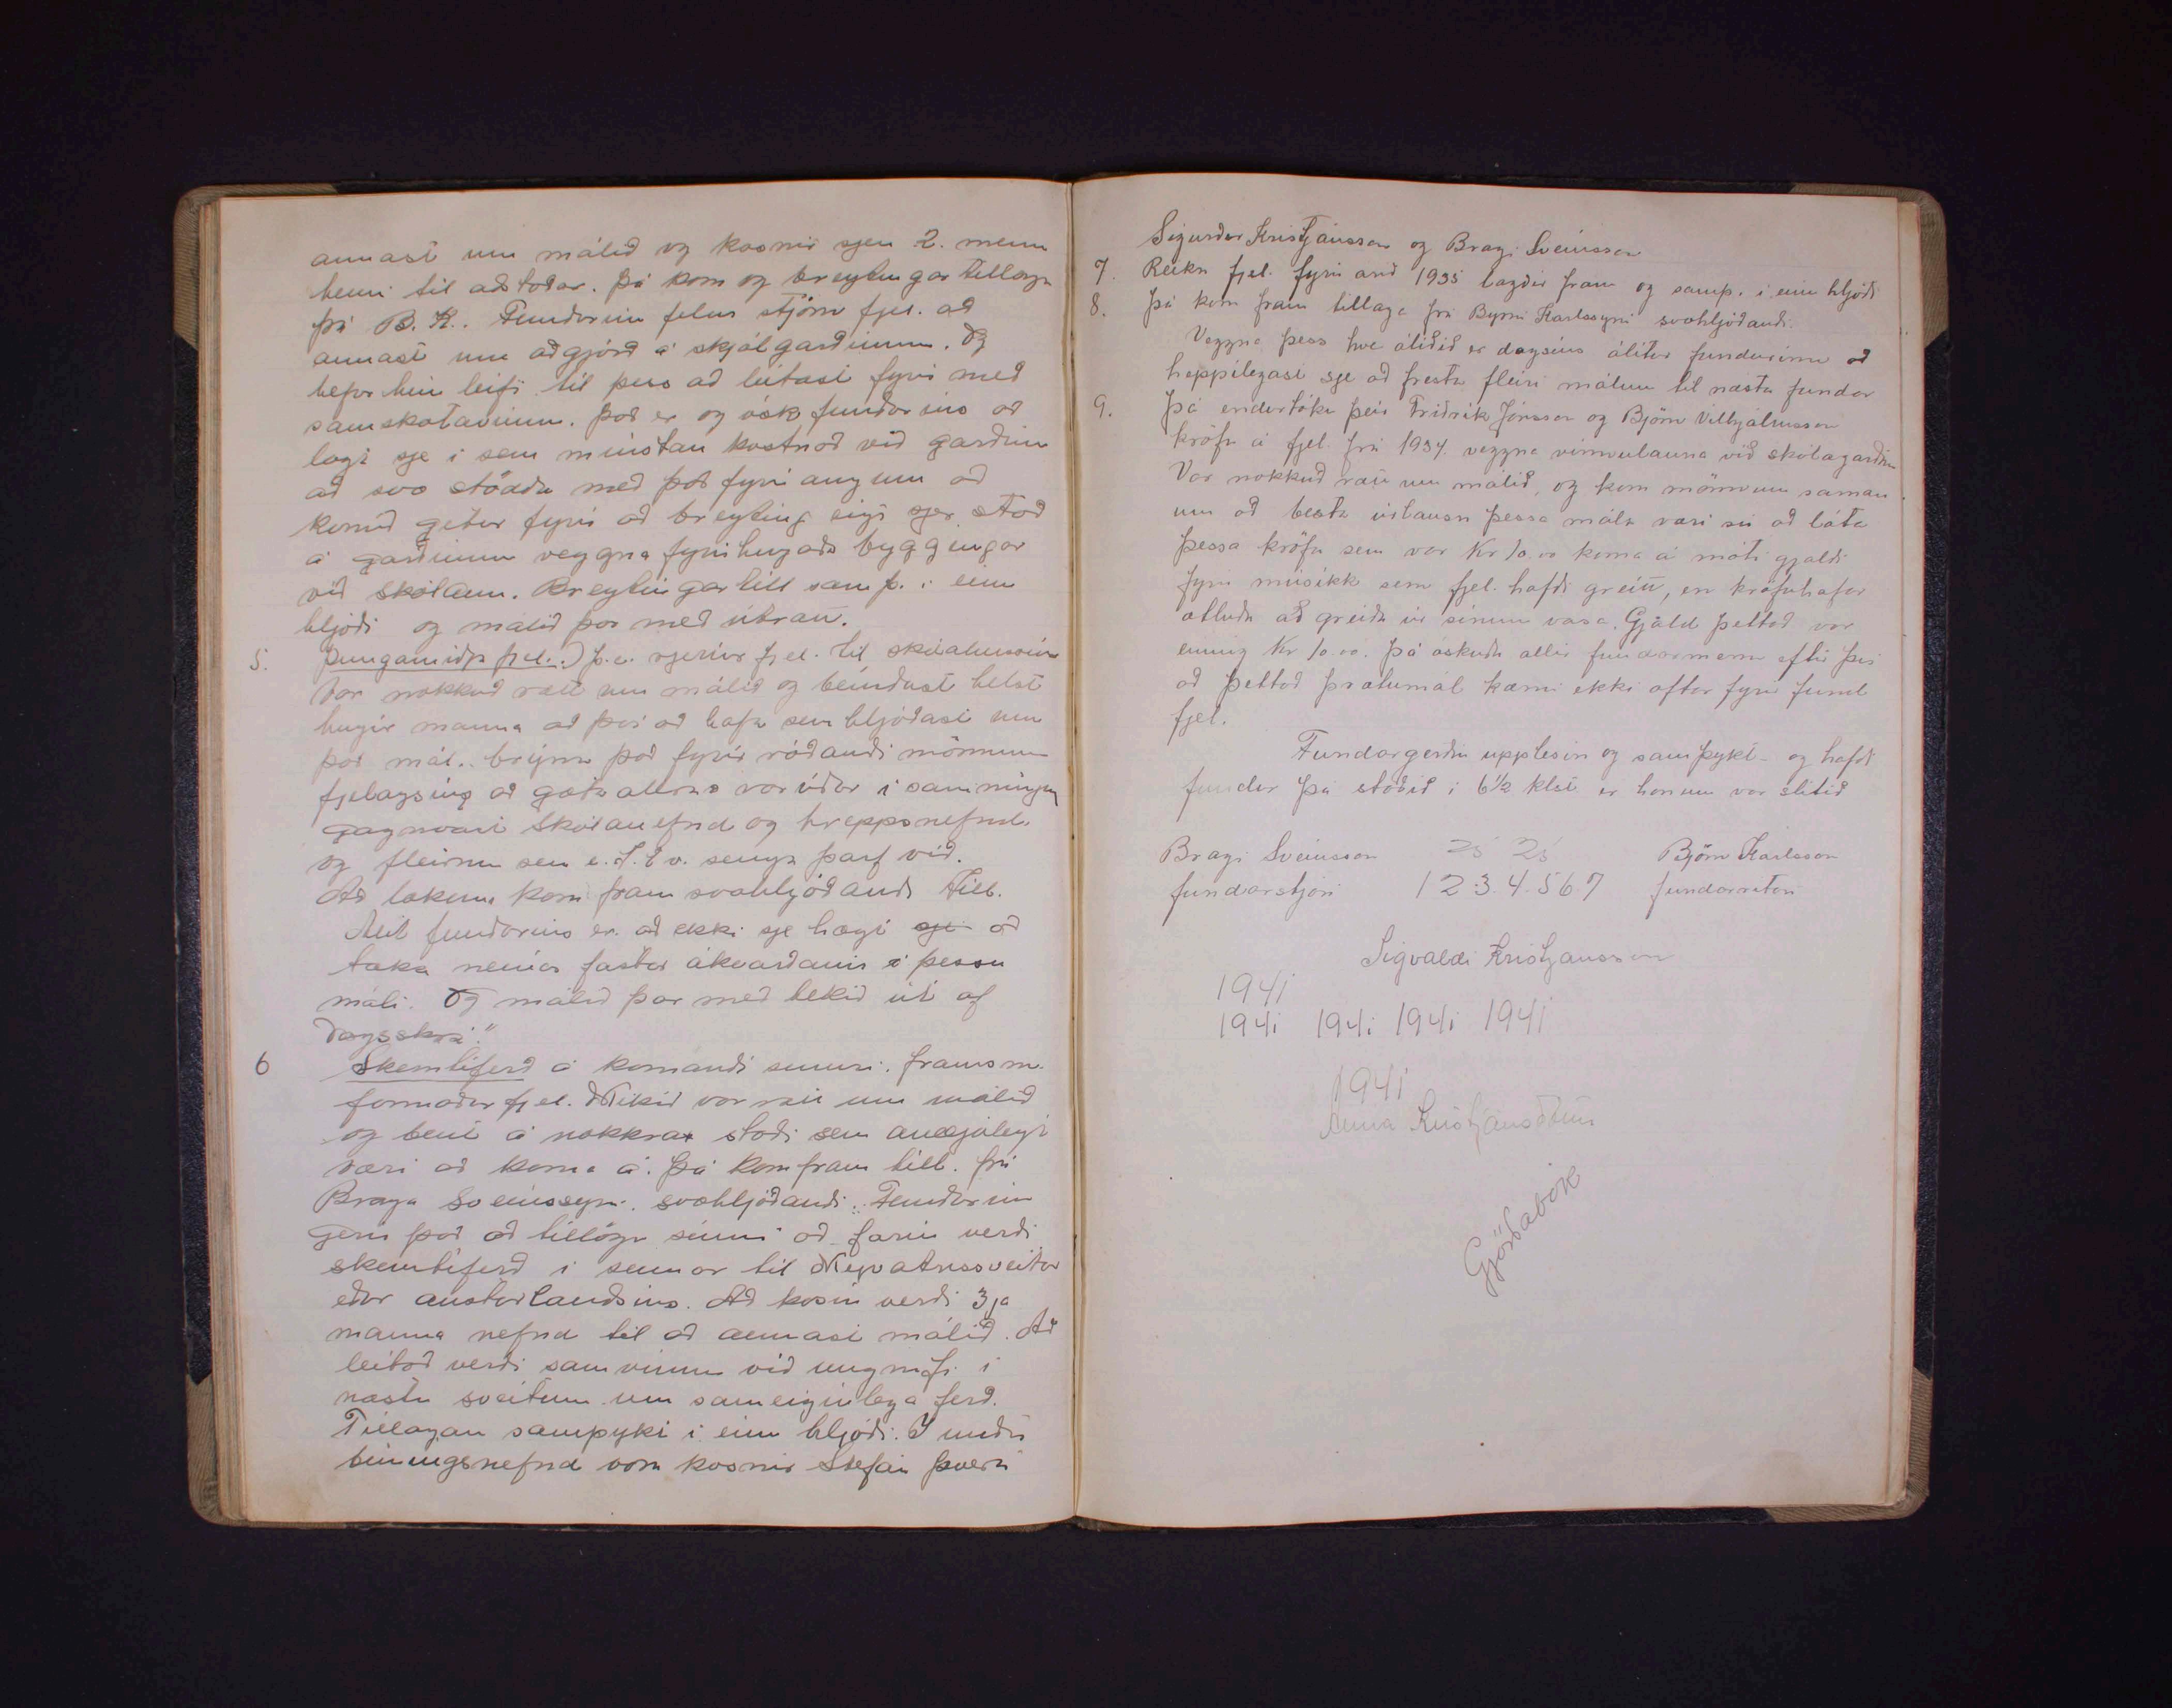 annast um málið og kosnir sjeu 2. menn
henni til aðstoðar. Þá kom og breytingar tillaga
frá B. K. Fundurinn felur stjórn fjel. að
annast um aðgjörð á skjólgarðinum. Og
hefur hún leifi til þess að leitast fyrir með
samskotavinnu. Það er og ósk fundarins að
lagt sje í sem minstan kostnað við garðinn
að svo stöddu með það fyrir augum að
komið getur fyrir að breyting eigi sjer stað
á garðinum veggna fyrirhugaðr byggingar
við skólann. Breytingartill samþ. í einu
hljóði og málið þar með útrætt.
5. Þungamiðja fjel.) þ.e. rjettur fjel. til skólahússins
Var nokkuð rætt um málið og beindust helst
hugir manna að því að hafa sem hljóðast um
það mál. brýna það fyrir ráðandi mönnum
fjelagsins að gæta allrar varúðar í samningum
gagnvart skólanefnd og hreppsnefnd.
og fleirum sem e. t. v. semja þarf við.
Að lokum kom fram svohljóðandi Till.
Álit fundarins er að ekki sje hægt sje að
taka neinar fastar ákvarðanir í þessu
máli. Og málið þar með tekið út af
dagsskrá."
6 Skemtiferð á komandi sumri. framsm.
formaður fjel. Mikið var rætt um málið
og bent á nokkra staði sem ánægjulegt
væri að koma á. Þá kom fram till. frá
Braga Sveinssyni. svohljóðandi: Fundurinn
gerir það að tillögu sinni að farin verði
skemtiferð í sumar til Mývatnssveitar
eða austurlandsins. Að kosin verði 3ja
manna nefnd til að annast málið. Að
leitað verði samvinnu við ungmfj. í
næstu sveitum um sameiginlega ferð.
Tillagan samþykt í einu hljóði. Í undir
búningsnefnd voru kosnir Stefán Þverá
Sigurður Kristjánsson og Bragi Sveinsson
7. Reikn fjel. fyrir árið 1935 lagðir fram og samþ. í einu hljóði
8. Þá kom fram tillaga frá Byrni Karlssyni svohljóðandi.
Veggna þess hve áliðið er dagsins álitur fundurinn að
heppilegast sje að fresta fleiri málum til næsta fundar
9. Þá endurtóku þeir Friðrik Jónsson og Björn Vilhjálmsson
kröfu á fjel. frá 1934. veggna vinnulauna við skólagarðinn
Var nokkuð rætt um málið, og kom mönnum saman
um að besta úrlausn þessa máls væri sú að láta
þessa kröfu sem var Kr 10.00 koma á móti gjaldi
fyrir músikk sem fjel. hafði greitt, en kröfuhafar
ætluðu að greiða úr sínum vasa. Gjald þettað var
einnig Kr 10.00. Þá óskuðu allir fundarmenn eftir því
að þettað þrætumál kæmi ekki oftar fyrir fund
fjel.
Fundargerðin upplesin og samþykt - og hafði
fundur þá staðið í 6½ klst er honum var slitið
Bragi Sveinsson 25 25 Björn Karlsson
fundarstjóri 1 2 3. 4. 5 6. 7 fundarritari
Sigvaldi Kristjánsson
1941
1941 1941 1941 1941
1941
Anna Kristjánsdóttir
Gjörðabók